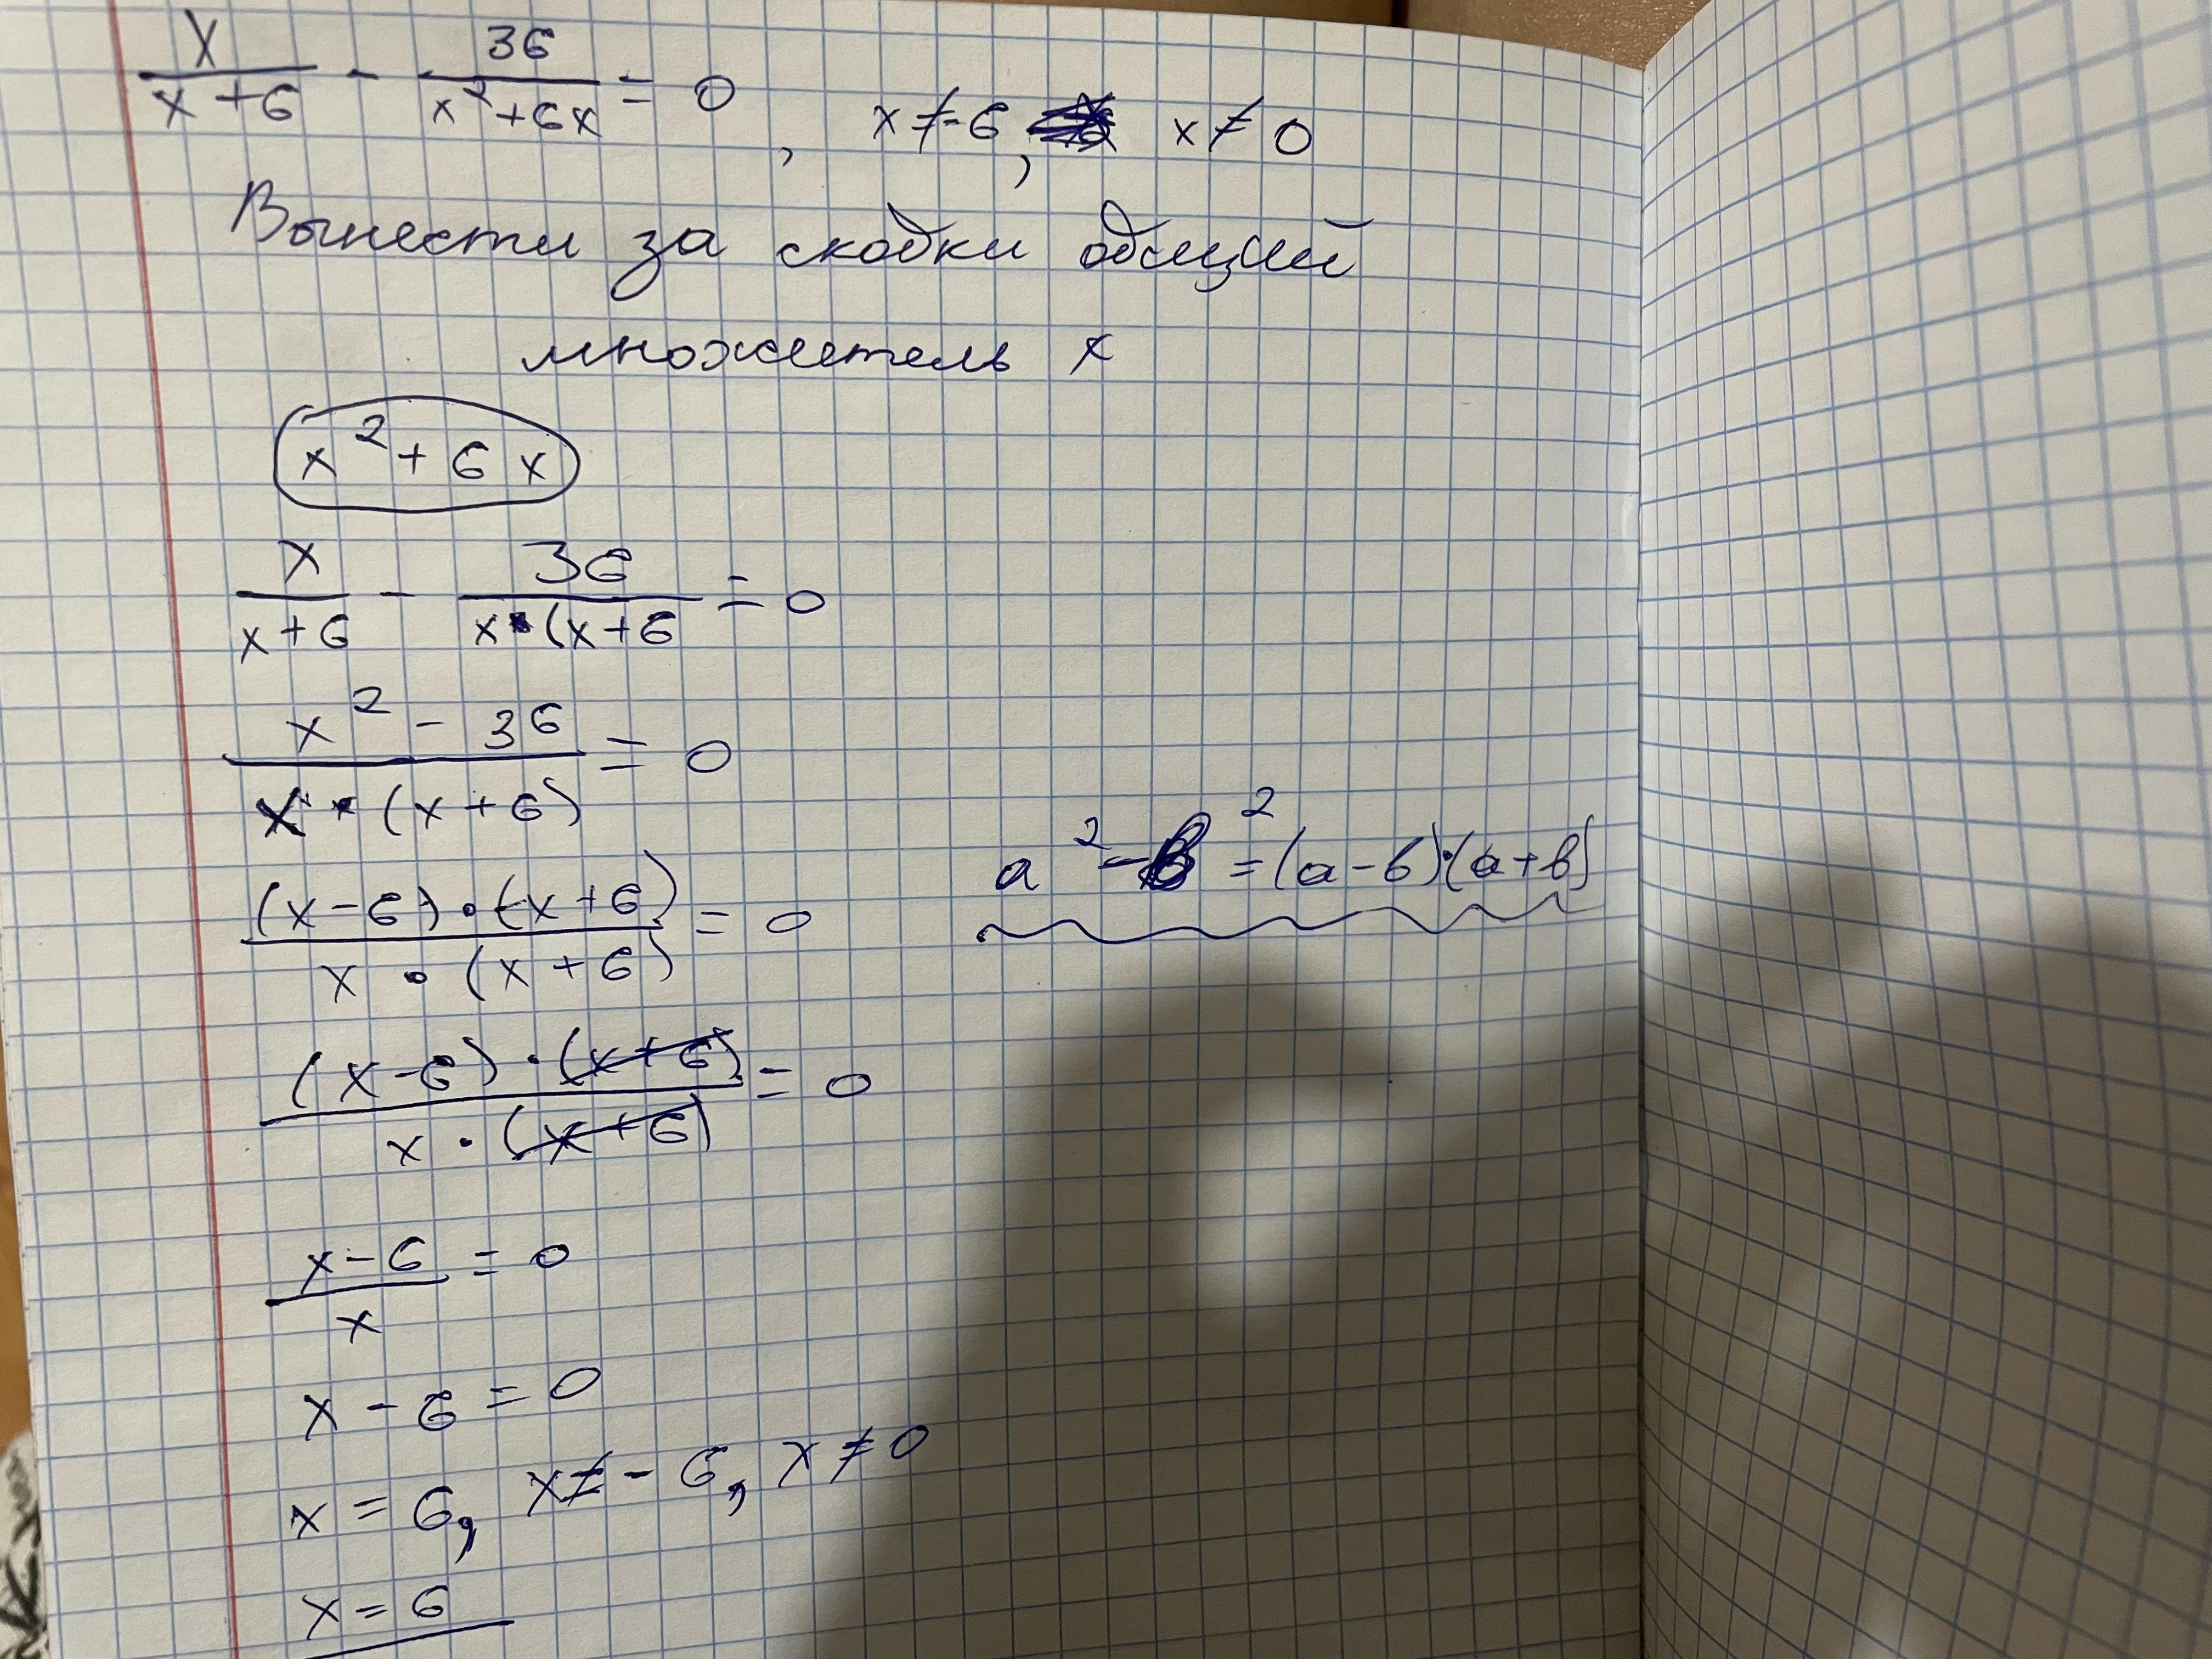 x/(x+6) - 36/(x²+6x) = 0, x ≠ -6, x ≠ 0
Вынести за скобки общий
множитель x
x² + 6x
x/(x+6) - 36/(x·(x+6) = 0
(x² - 36)/(x·(x+6)) = 0
((x-6)·(x+6))/(x·(x+6)) = 0
a² - b² = (a-b)·(a+b)
((x-6)·(x+6))/(x·(x+6)) = 0
(x-6)/x = 0
x - 6 = 0
x = 6, x ≠ -6, x ≠ 0
x = 6